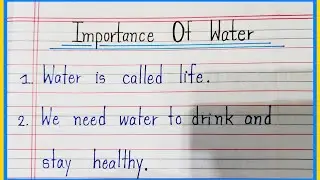 Importance Of Water
1. Water is called life.
2. We need water to drink and
stay healthy.